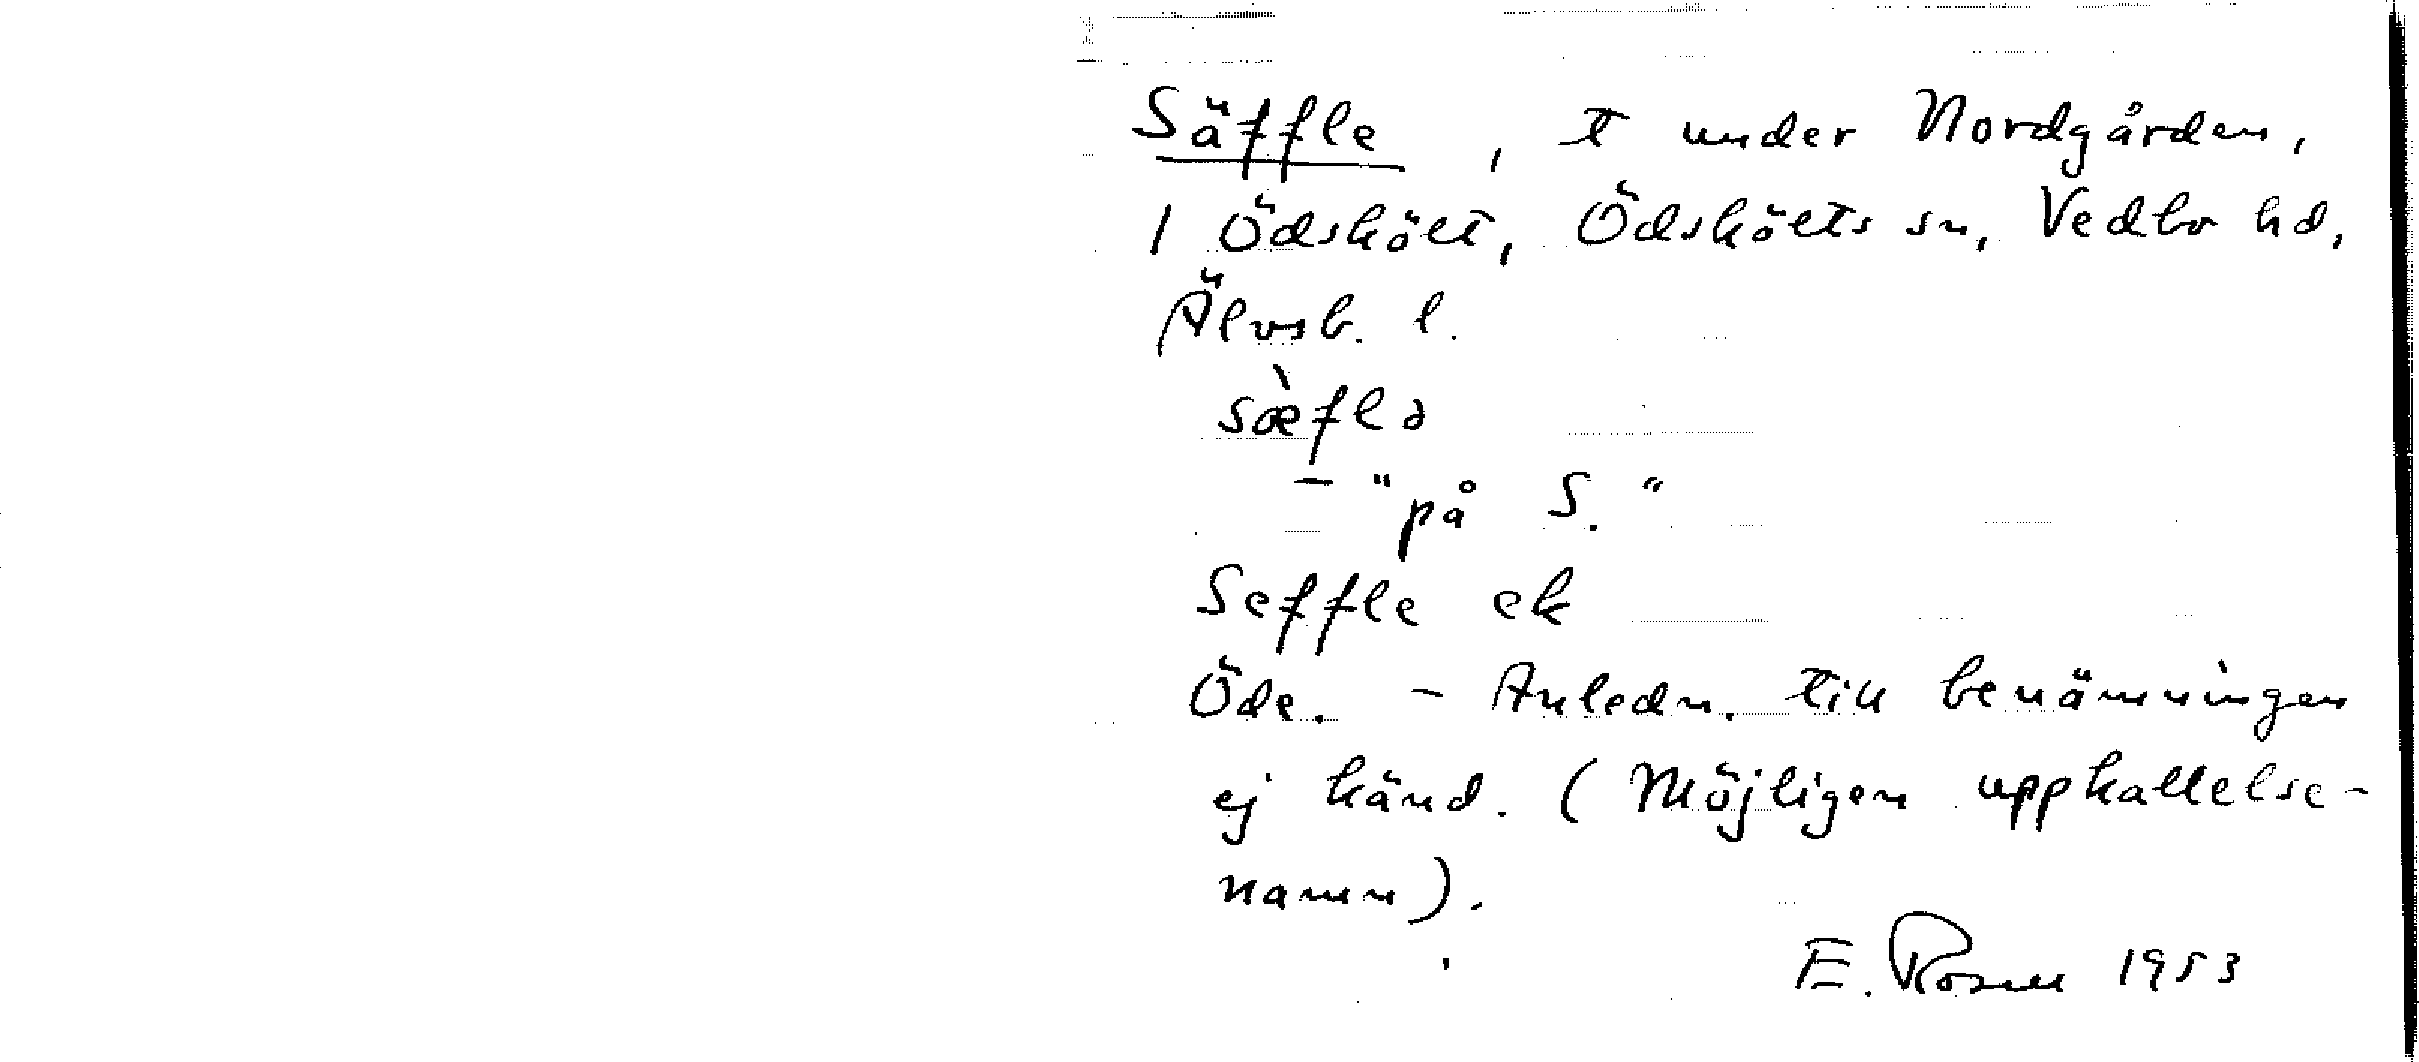 Säffle, t under Nordgården,
1 Ödskölt, Ödskölts sn, Vedbo hd,
Älvsb. l.
sæ̀flə
– "på S."
Seffle ek
Öde. – Anledn. till benämningen
ej känd. (Möjligen uppkallelse-
namn).
E. Rosell 1953